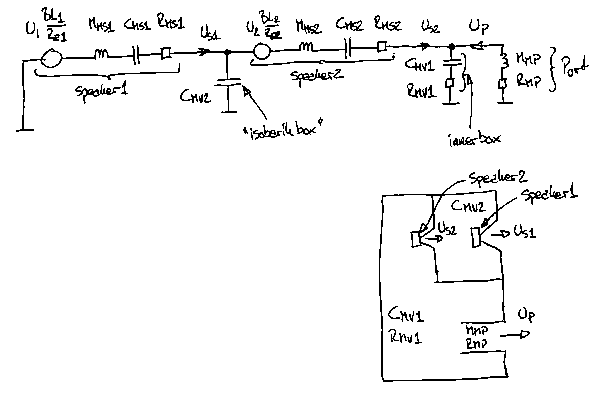 U1 BL1/RE1 MMS1 CMS1 RMS1 US1 U2 BL2/RE2 MMS2 CMS2 RMS2 US2 UP
speaker1
CMV2
"isobarik box"
speaker2
CMV1
RMV1
innerbox
MMP
RMP
Port
speaker2
speaker1
CMV2
US2
US1
CMV1
RMV1
MMP
RMP
UP